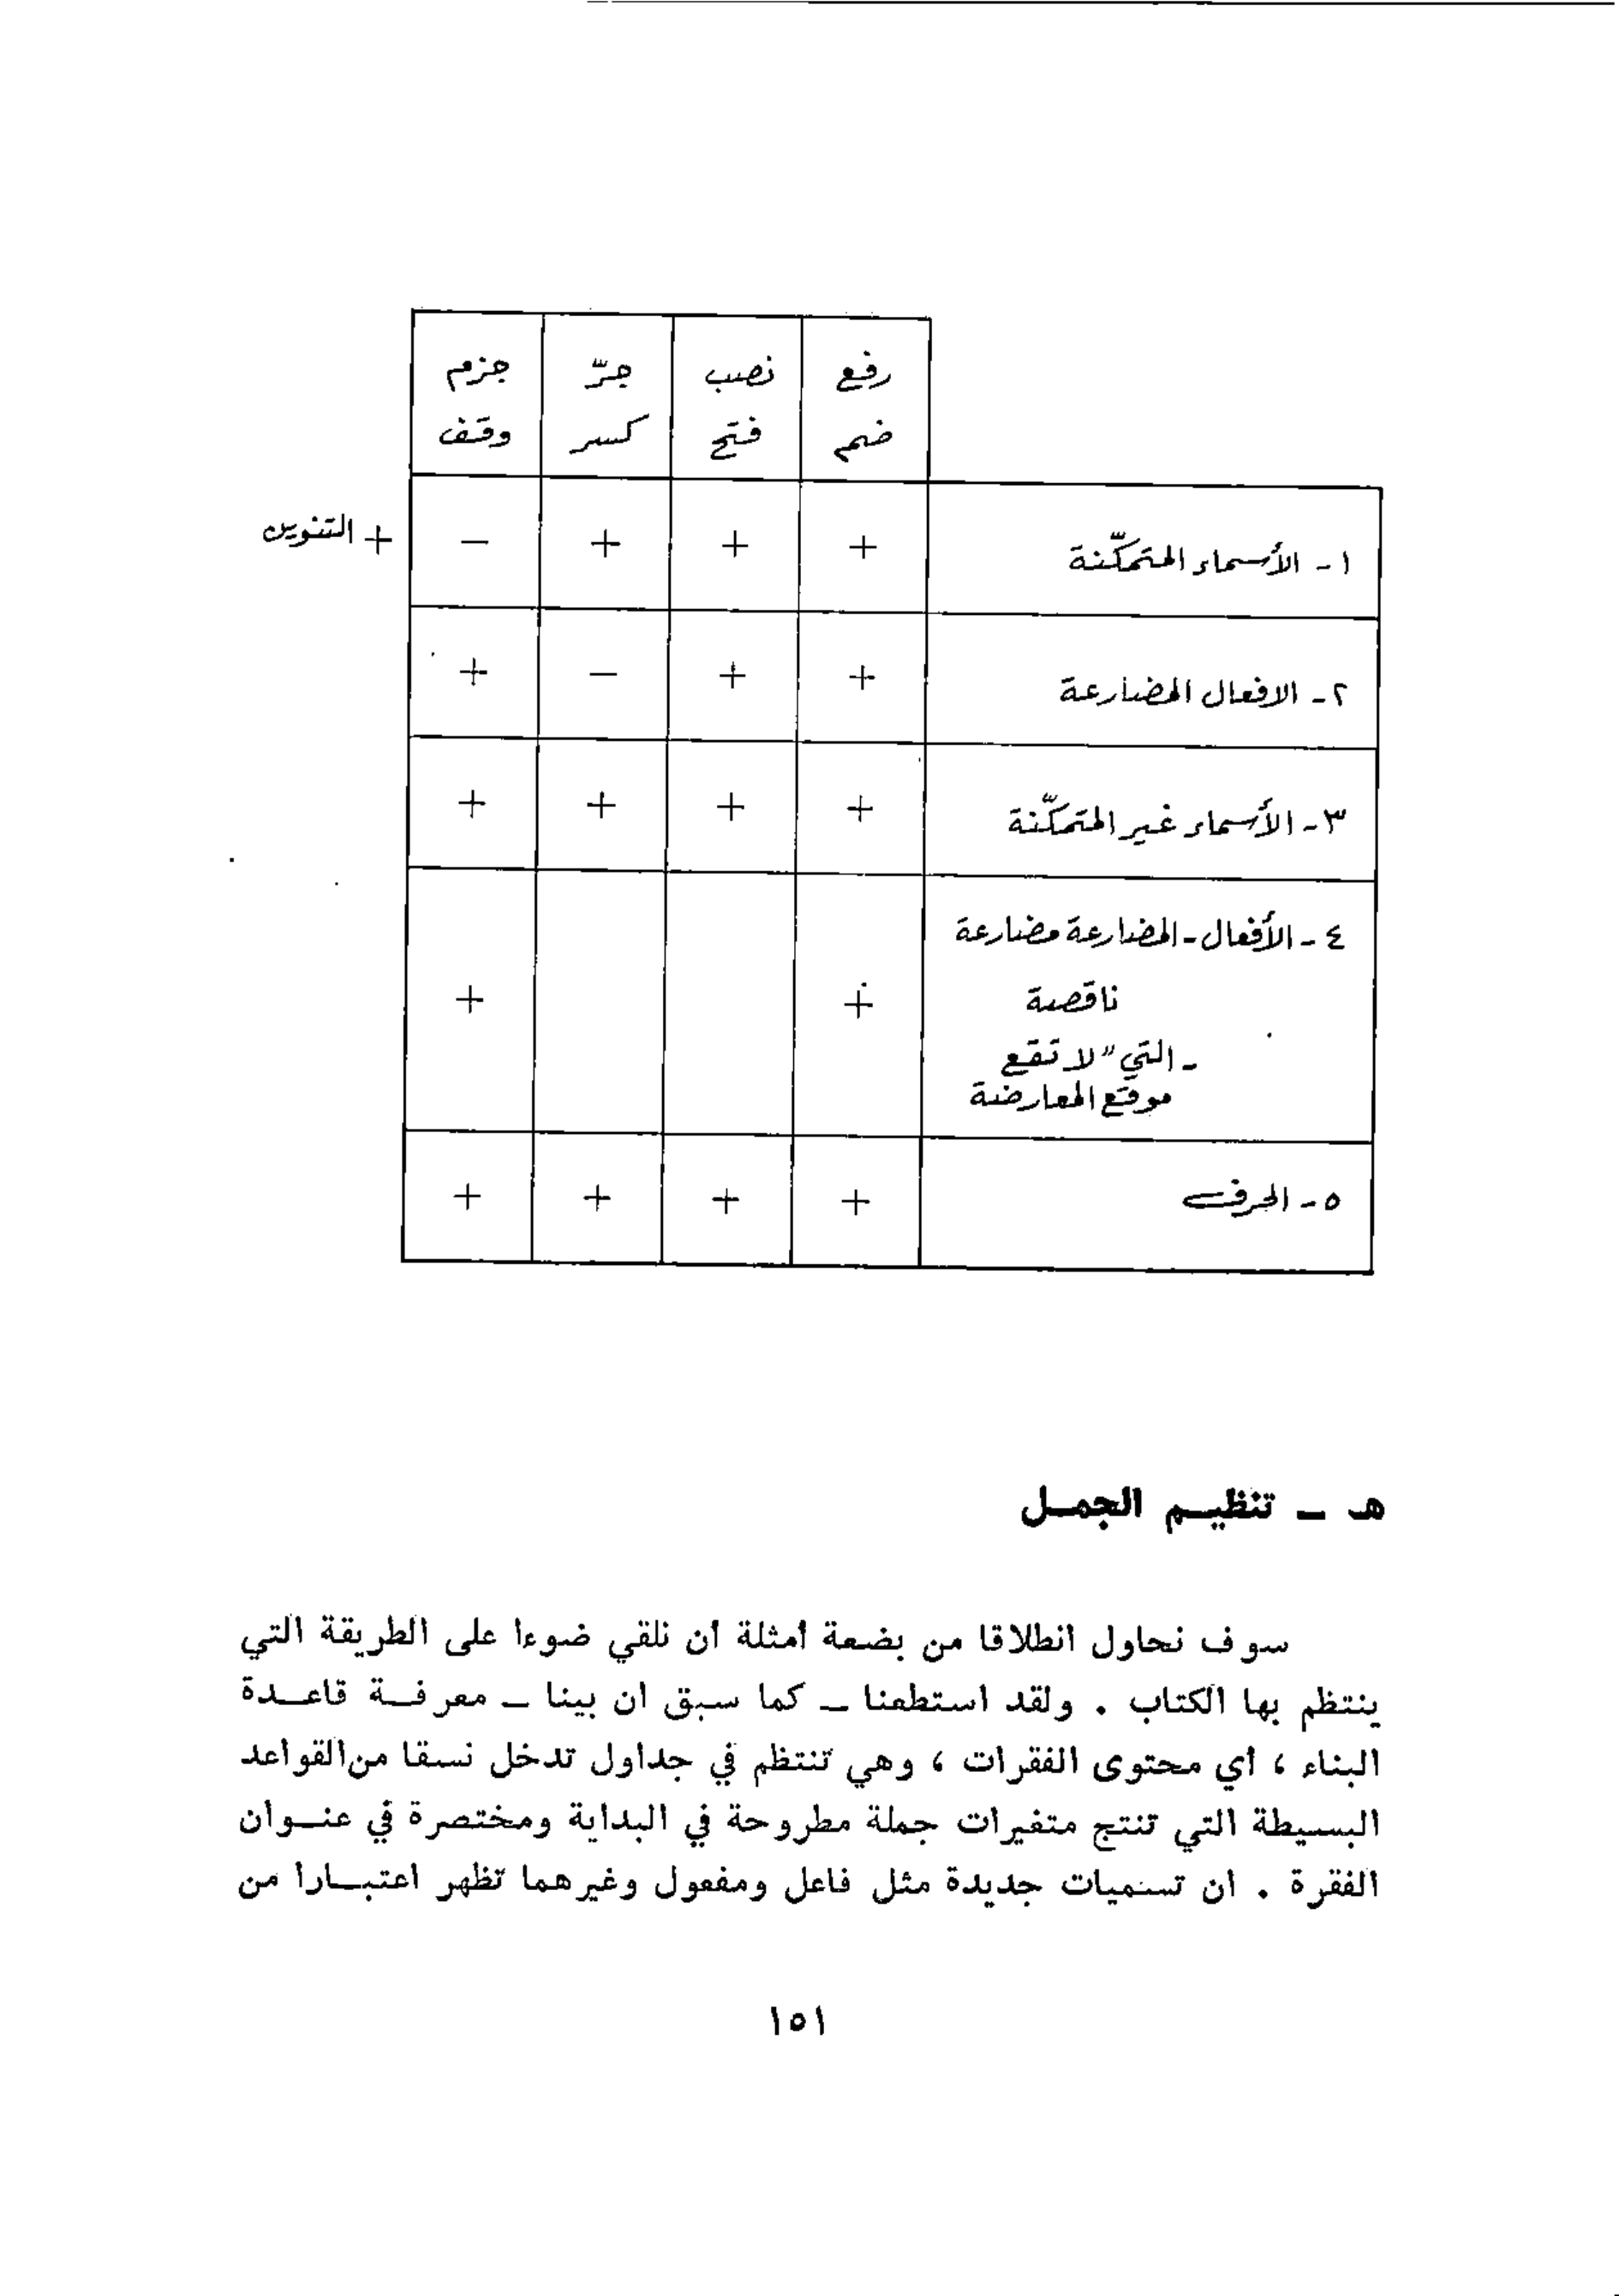 رفع نصب جرّ جزم
ضم فتح كسر وقف
١ - الأسماء المتمكّنة + + + - + التنوين
٢ - الافعال المضارعة + + - +
٣ - الأسماء غير المتمكّنة + + + +
٤ - الأفعال - المضارعة مضارعة
ناقصة + +
- التي "لا تقع
موقع المعارضة
٥ - الحرف + + + +
هـ ـ تنظيـم الجمـل
سوف نحاول انطلاقا من بضعة أمثلة أن نلقي ضوءا على الطريقة التي
ينتظم بها الكتاب . ولقد استطعنا ـ كما سبق ان بينا ـ معرفـة قاعـدة
البناء ، أي محتوى الفقرات ، وهي تنتظم في جداول تدخل نسقا من القواعد
البسيطة التي تنتج متغيرات جملة مطروحة في البداية ومختصرة في عنـوان
الفقرة . ان تسميات جديدة مثل فاعل ومفعول وغيرهما تظهر اعتبـارا من
١٥١